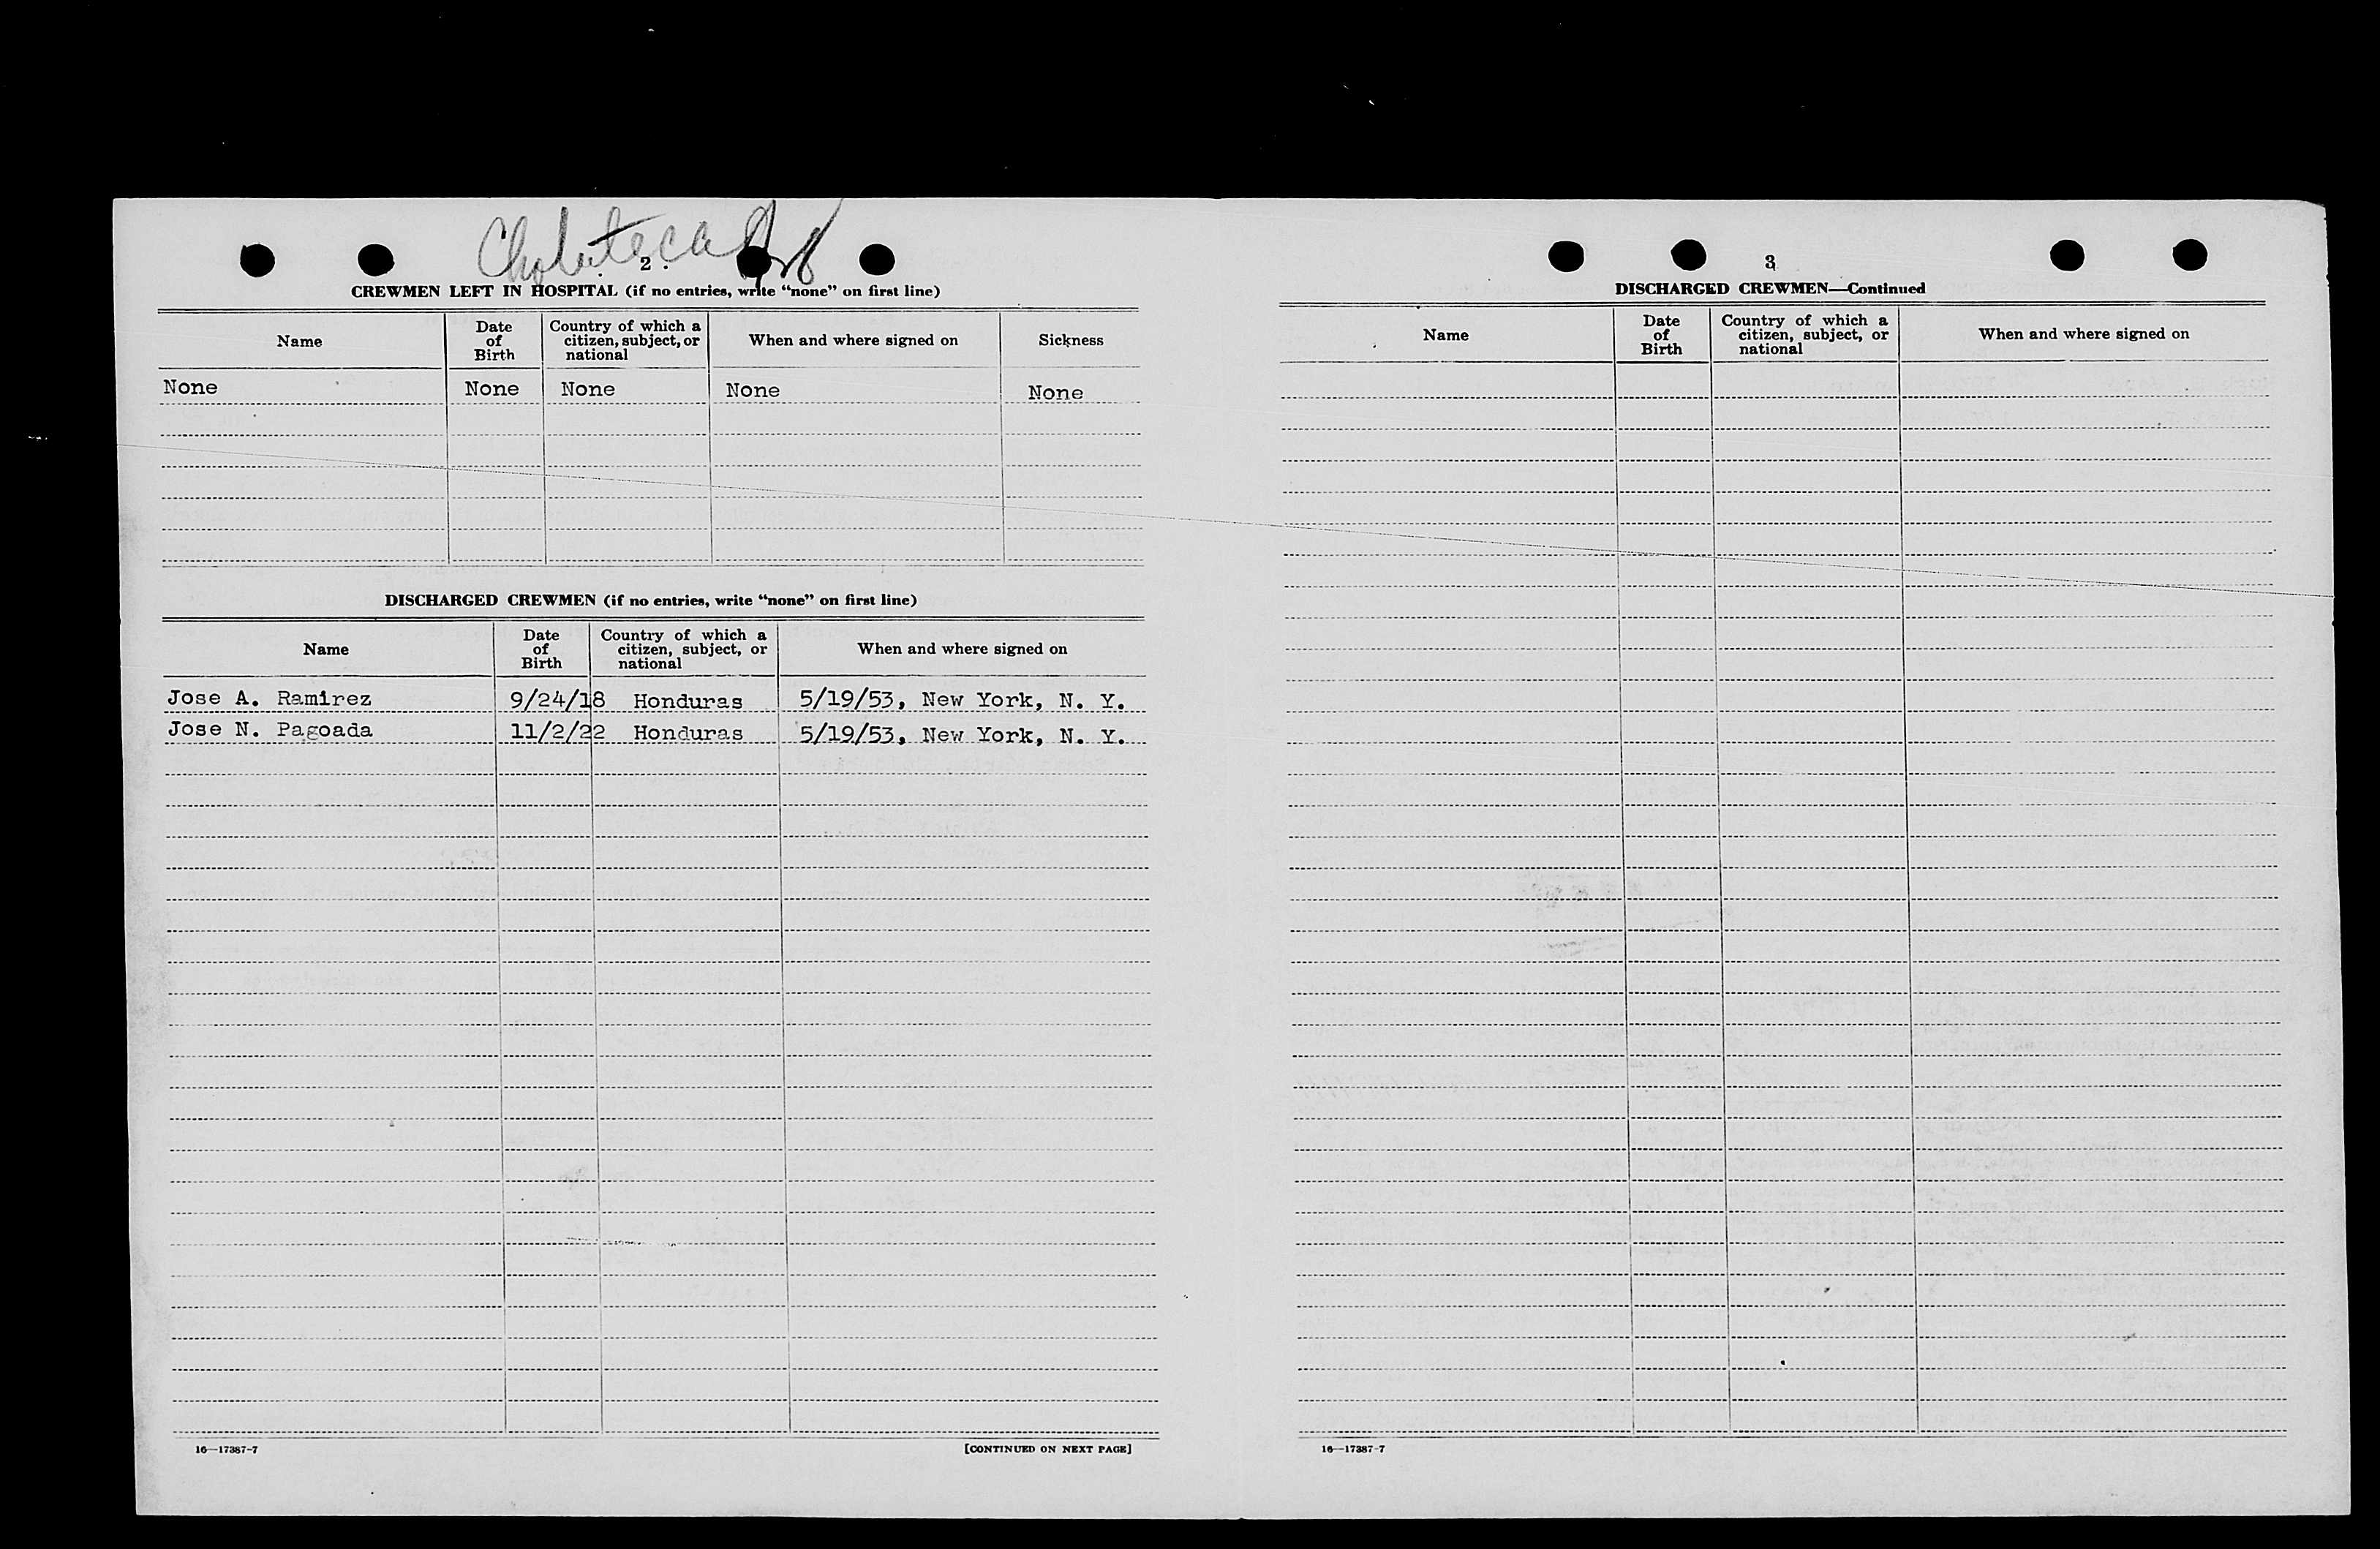 Choluteca
2
CREWMEN LEFT IN HOSPITAL (if no entries, write “none” on first line)
Name Date of Birth Country of which a citizen, subject, or national When and where signed on Sickness
None None None None None
DISCHARGED CREWMEN (if no entries, write “none” on first line)
Name Date of Birth Country of which a citizen, subject, or national When and where signed on
Jose A. Ramirez 9/24/18 Honduras 5/19/53, New York, N. Y.
Jose N. Pagoada 11/2/22 Honduras 5/19/53, New York, N. Y.
16—17387-7 [CONTINUED ON NEXT PAGE]
3
DISCHARGED CREWMEN—Continued
Name Date of Birth Country of which a citizen, subject, or national When and where signed on
16—17387-7